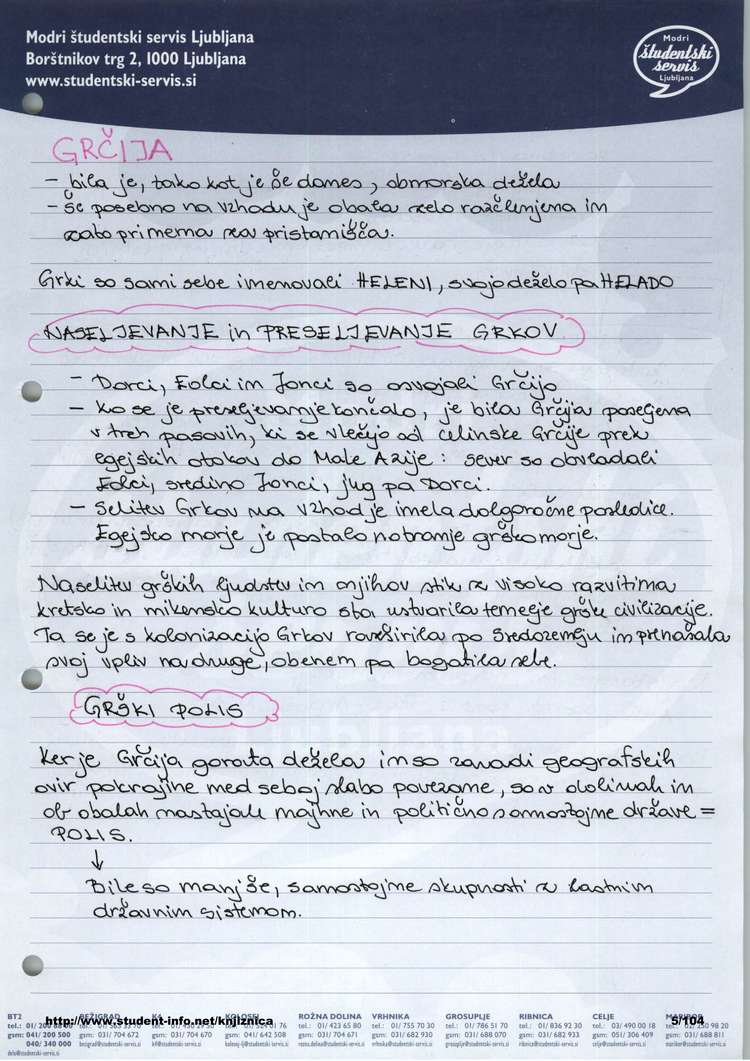 Modri študentski servis Ljubljana
Borštnikov trg 2, 1000 Ljubljana
www.studentski-servis.si
Modri
študentski
servis
Ljubljana
GRČIJA
- bila je, tako kot je še danes, obmorska dežela
- še posebno na vzhodu je obala zelo razčlenjena in
zato primerna za pristanišča.
Grki so sami sebe imenovali HELENI, svojo deželo pa HELADO
NASELJEVANJE in PRESELJEVANJE GRKOV
- Dorci, Eolci in Jonci so osvojali Grčijo
- ko se je preseljevanje končalo, je bila Grčija poseljena
v treh pasovih, ki se vlečejo od celinske Grčije prek
egejskih otokov do Male Azije: sever so obvladali
Eolci, sredino Jonci, jug pa Dorci.
- Selitev Grkov na vzhod je imela dolgoročne posledice.
Egejsko morje je postalo notranje grško morje.
Naselitev grških ljudstev in njihov stik z visoko razvitima
kretsko in mikensko kulturo sta ustvarila temelje grške civilizacije.
Ta se je s kolonizacijo Grkov razširila po Sredozemlju in prenašala
svoj vpliv na druge, obenem pa bogatila sebe.
GRŠKI POLIS
Ker je Grčija gorata dežela in so zaradi geografskih
ovir pokrajine med seboj slabo povezane, so v dolinah in
ob obalah nastajale majhne in politično samostojne države =
POLIS.
↓
Bile so manjše, samostojne skupnosti z lastnim
državnim sistemom.
http://www.student-info.net/knjiznica
5/104
BT2
gsm: 041/ 200 500
040/ 340 000
BEŽIGRAD
gsm: 031/ 704 672
gsm: 031/ 704 670
gsm: 041/ 642 508
ROŽNA DOLINA
tel.: 01/ 423 65 80
gsm: 031/ 704 671
VRHNIKA
tel.: 01/ 755 70 30
gsm: 031/ 682 930
GROSUPLJE
tel.: 01/ 786 51 70
gsm: 031/ 688 070
RIBNICA
tel.: 01/ 836 92 30
gsm: 031/ 688 092
CELJE
tel.: 03/ 490 00 18
gsm: 051/ 306 409
MARIBOR
gsm: 031/ 688 811